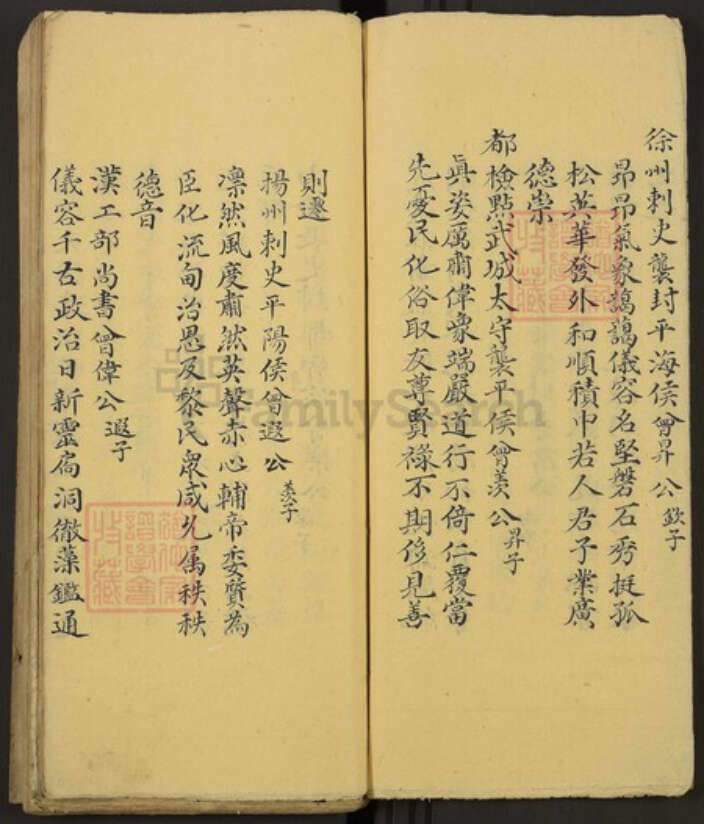 徐州刺史襲封平海侯曾昇公欽子
昂昂氣象藹藹儀容名堅磐石秀挺孤
松英華發外和順積中若人君子業廣
德崇
都檢點武城太守襲平侯曾羡公昇子
真姿厲肅偉象端嚴道行不倚仁覆當
先憂民化俗取友尊賢祿不期侈見善
則遷
揚州刺史平陽侯曾遐公羨子
凜然風度肅然英聲赤心輔帝委質為
臣化流甸治恩及黎民衆咸允属秩秩
德音
漢工部尚書曾偉公遐子
儀容千古政治日新靈扃洞徹藻鑑通
FamilySearch